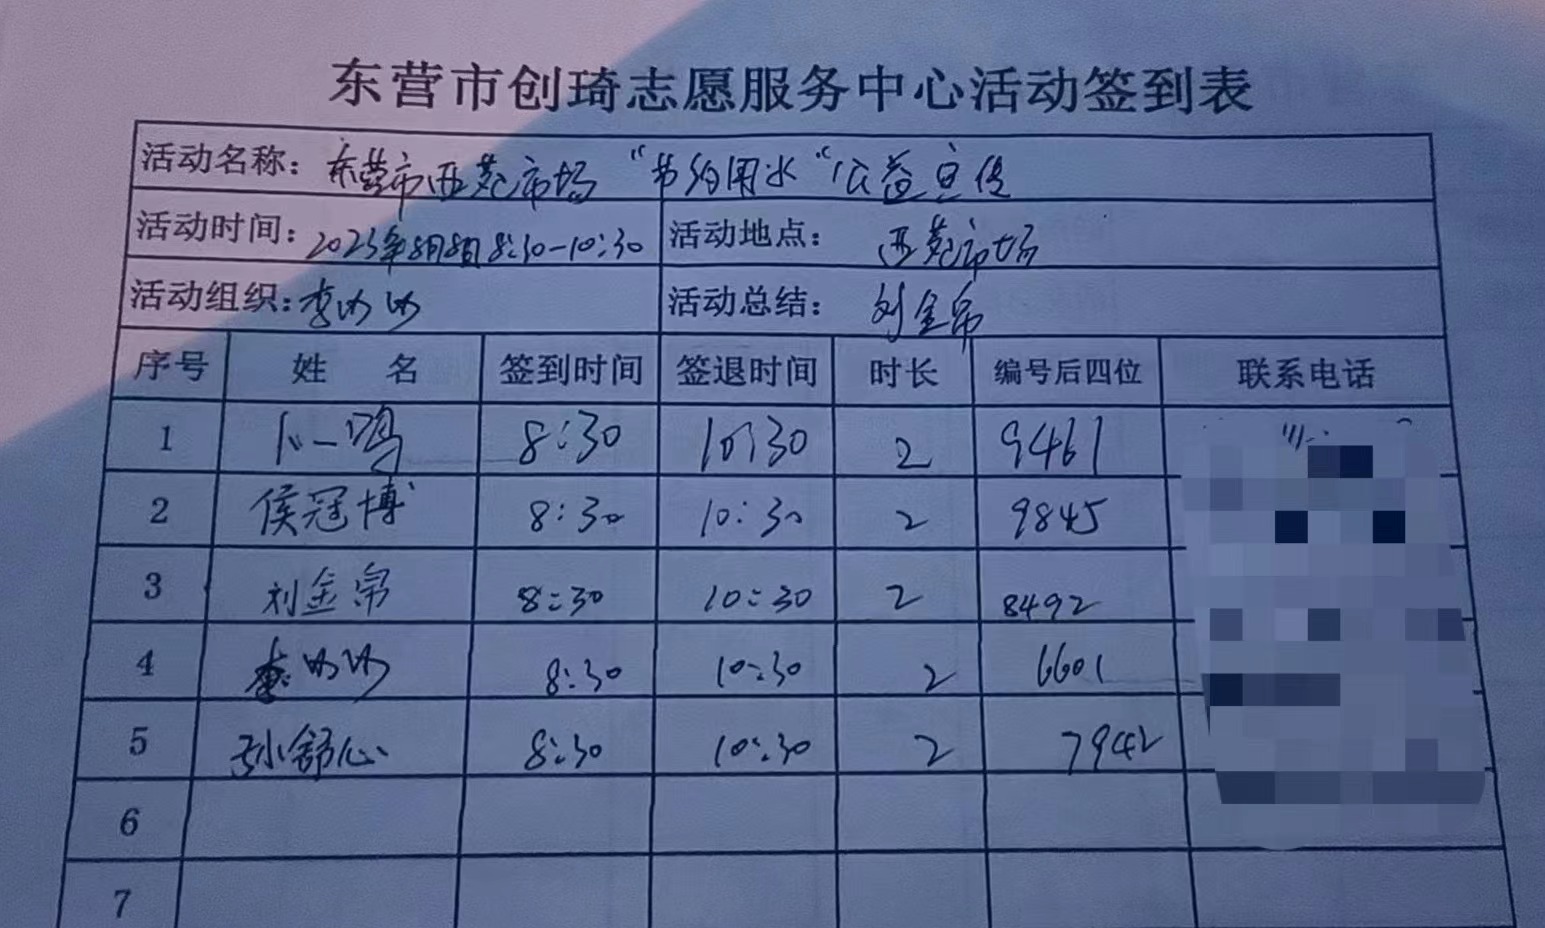 东营市创琦志愿服务中心活动签到表
活动名称：东营市西苑市场“节约用水“公益宣传
活动时间：2023年8月8日8:30-10:30 活动地点：西苑市场
活动组织：李 活动总结：刘金帛
序号 姓 名 签到时间 签退时间 时长 编号后四位 联系电话
1 卜一鸣 8:30 10:30 2 9461
2 侯冠博 8:30 10:30 2 9845
3 刘金帛 8:30 10:30 2 8492
4 李 8:30 10:30 2 6601
5 孙舒心 8:30 10:30 2 7942
6
7